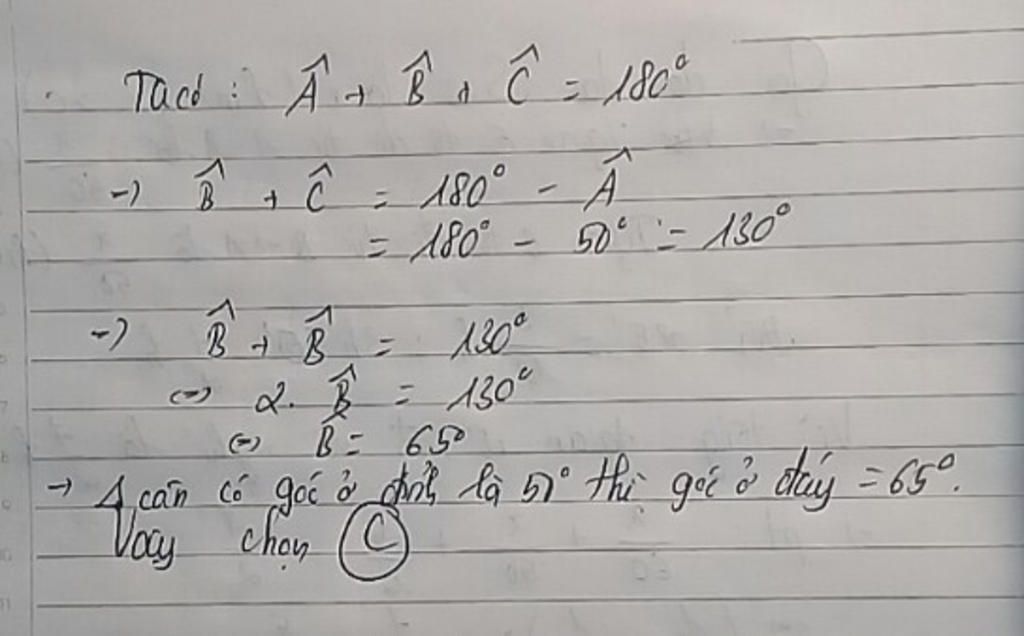 Ta có : Â + B̂ + Ĉ = 180°
→ B̂ + Ĉ = 180° - Â
= 180° - 50° = 130°
→ B̂ + B̂ = 130°
⇔ 2. B̂ = 130°
⇔ B̂ = 65°
→ Δ cân có góc ở đỉnh là 50° thì góc ở đáy = 65°.
Vậy chọn C